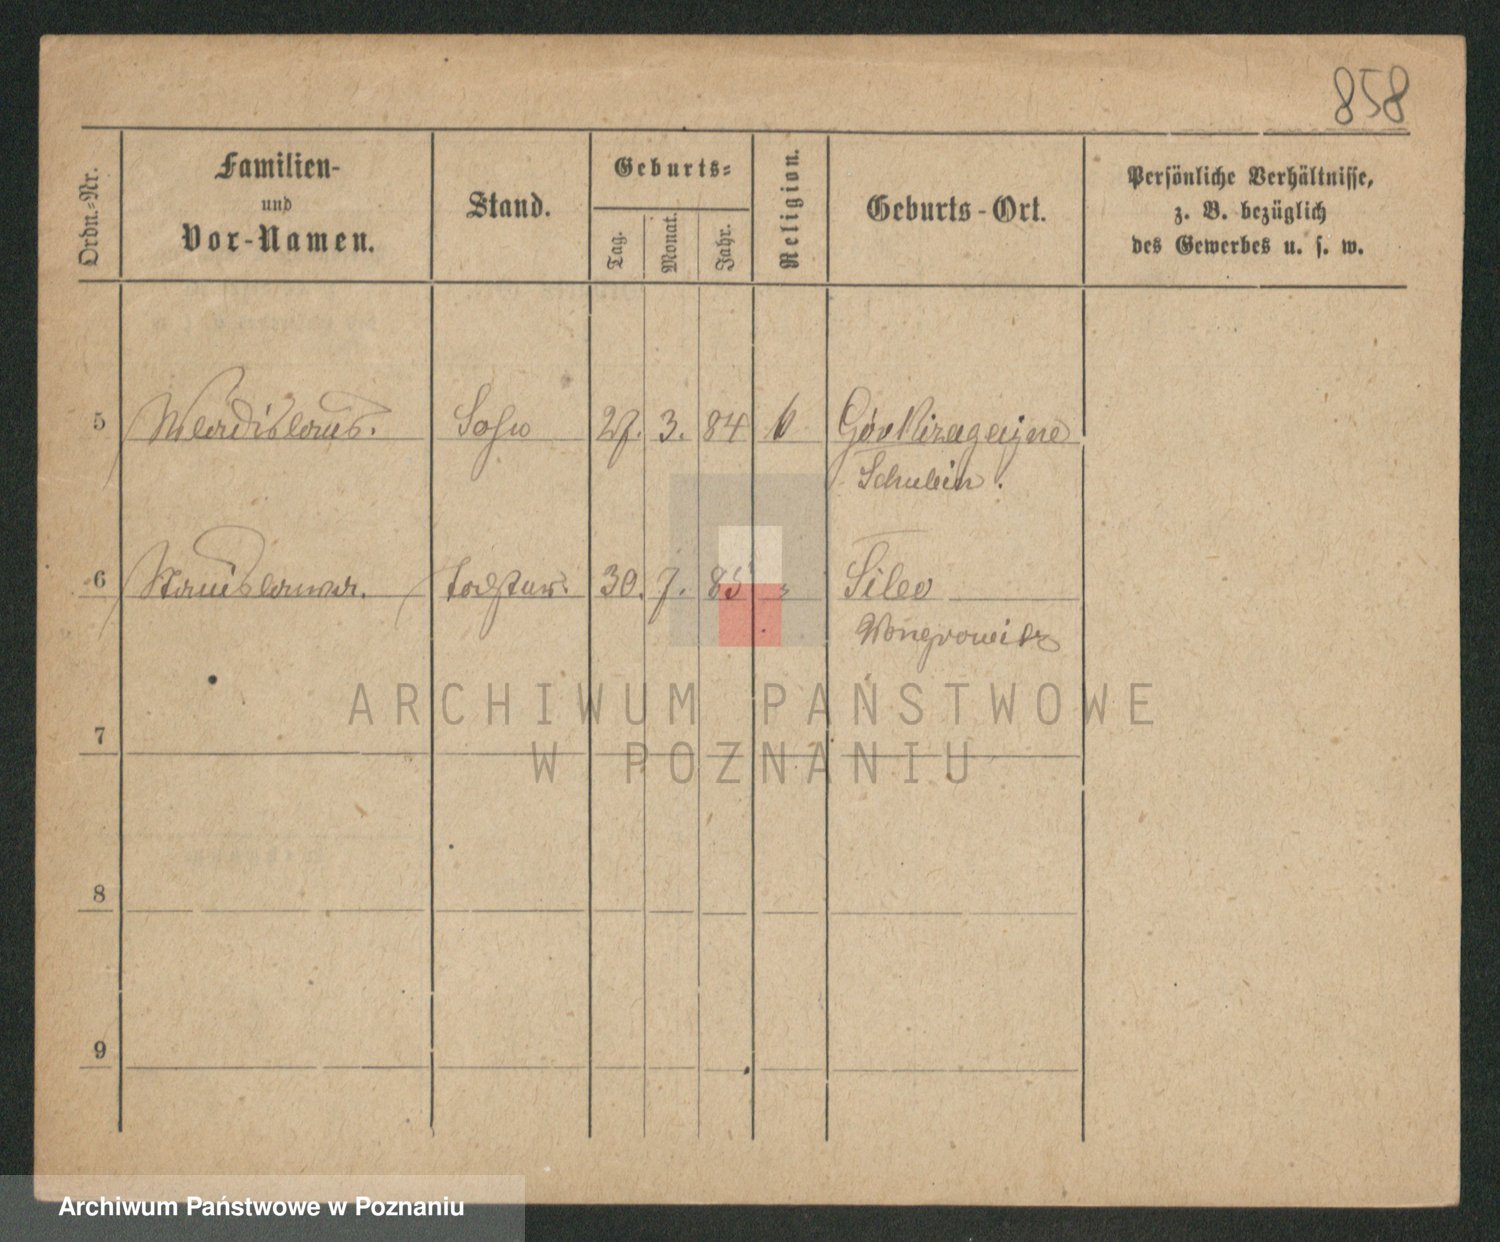 858
Ordn.-Nr.
Familien-
und
Vor-Namen.
Stand.
Geburts-
Tag.
Monat.
Jahr.
Religion.
Geburts-Ort.
Persönliche Verhältnisse,
z. B. bezüglich
des Gewerbes u. s. w.
5 Wladislaus. Sohn 27. 3. 84 k
Schubin.
6 Stanislawa. Tochter. 30. 7. 85 "
Wongrowitz
7
8
9
ARCHIWUM PAŃSTWOWE
W POZNANIU
Archiwum Państwowe w Poznaniu